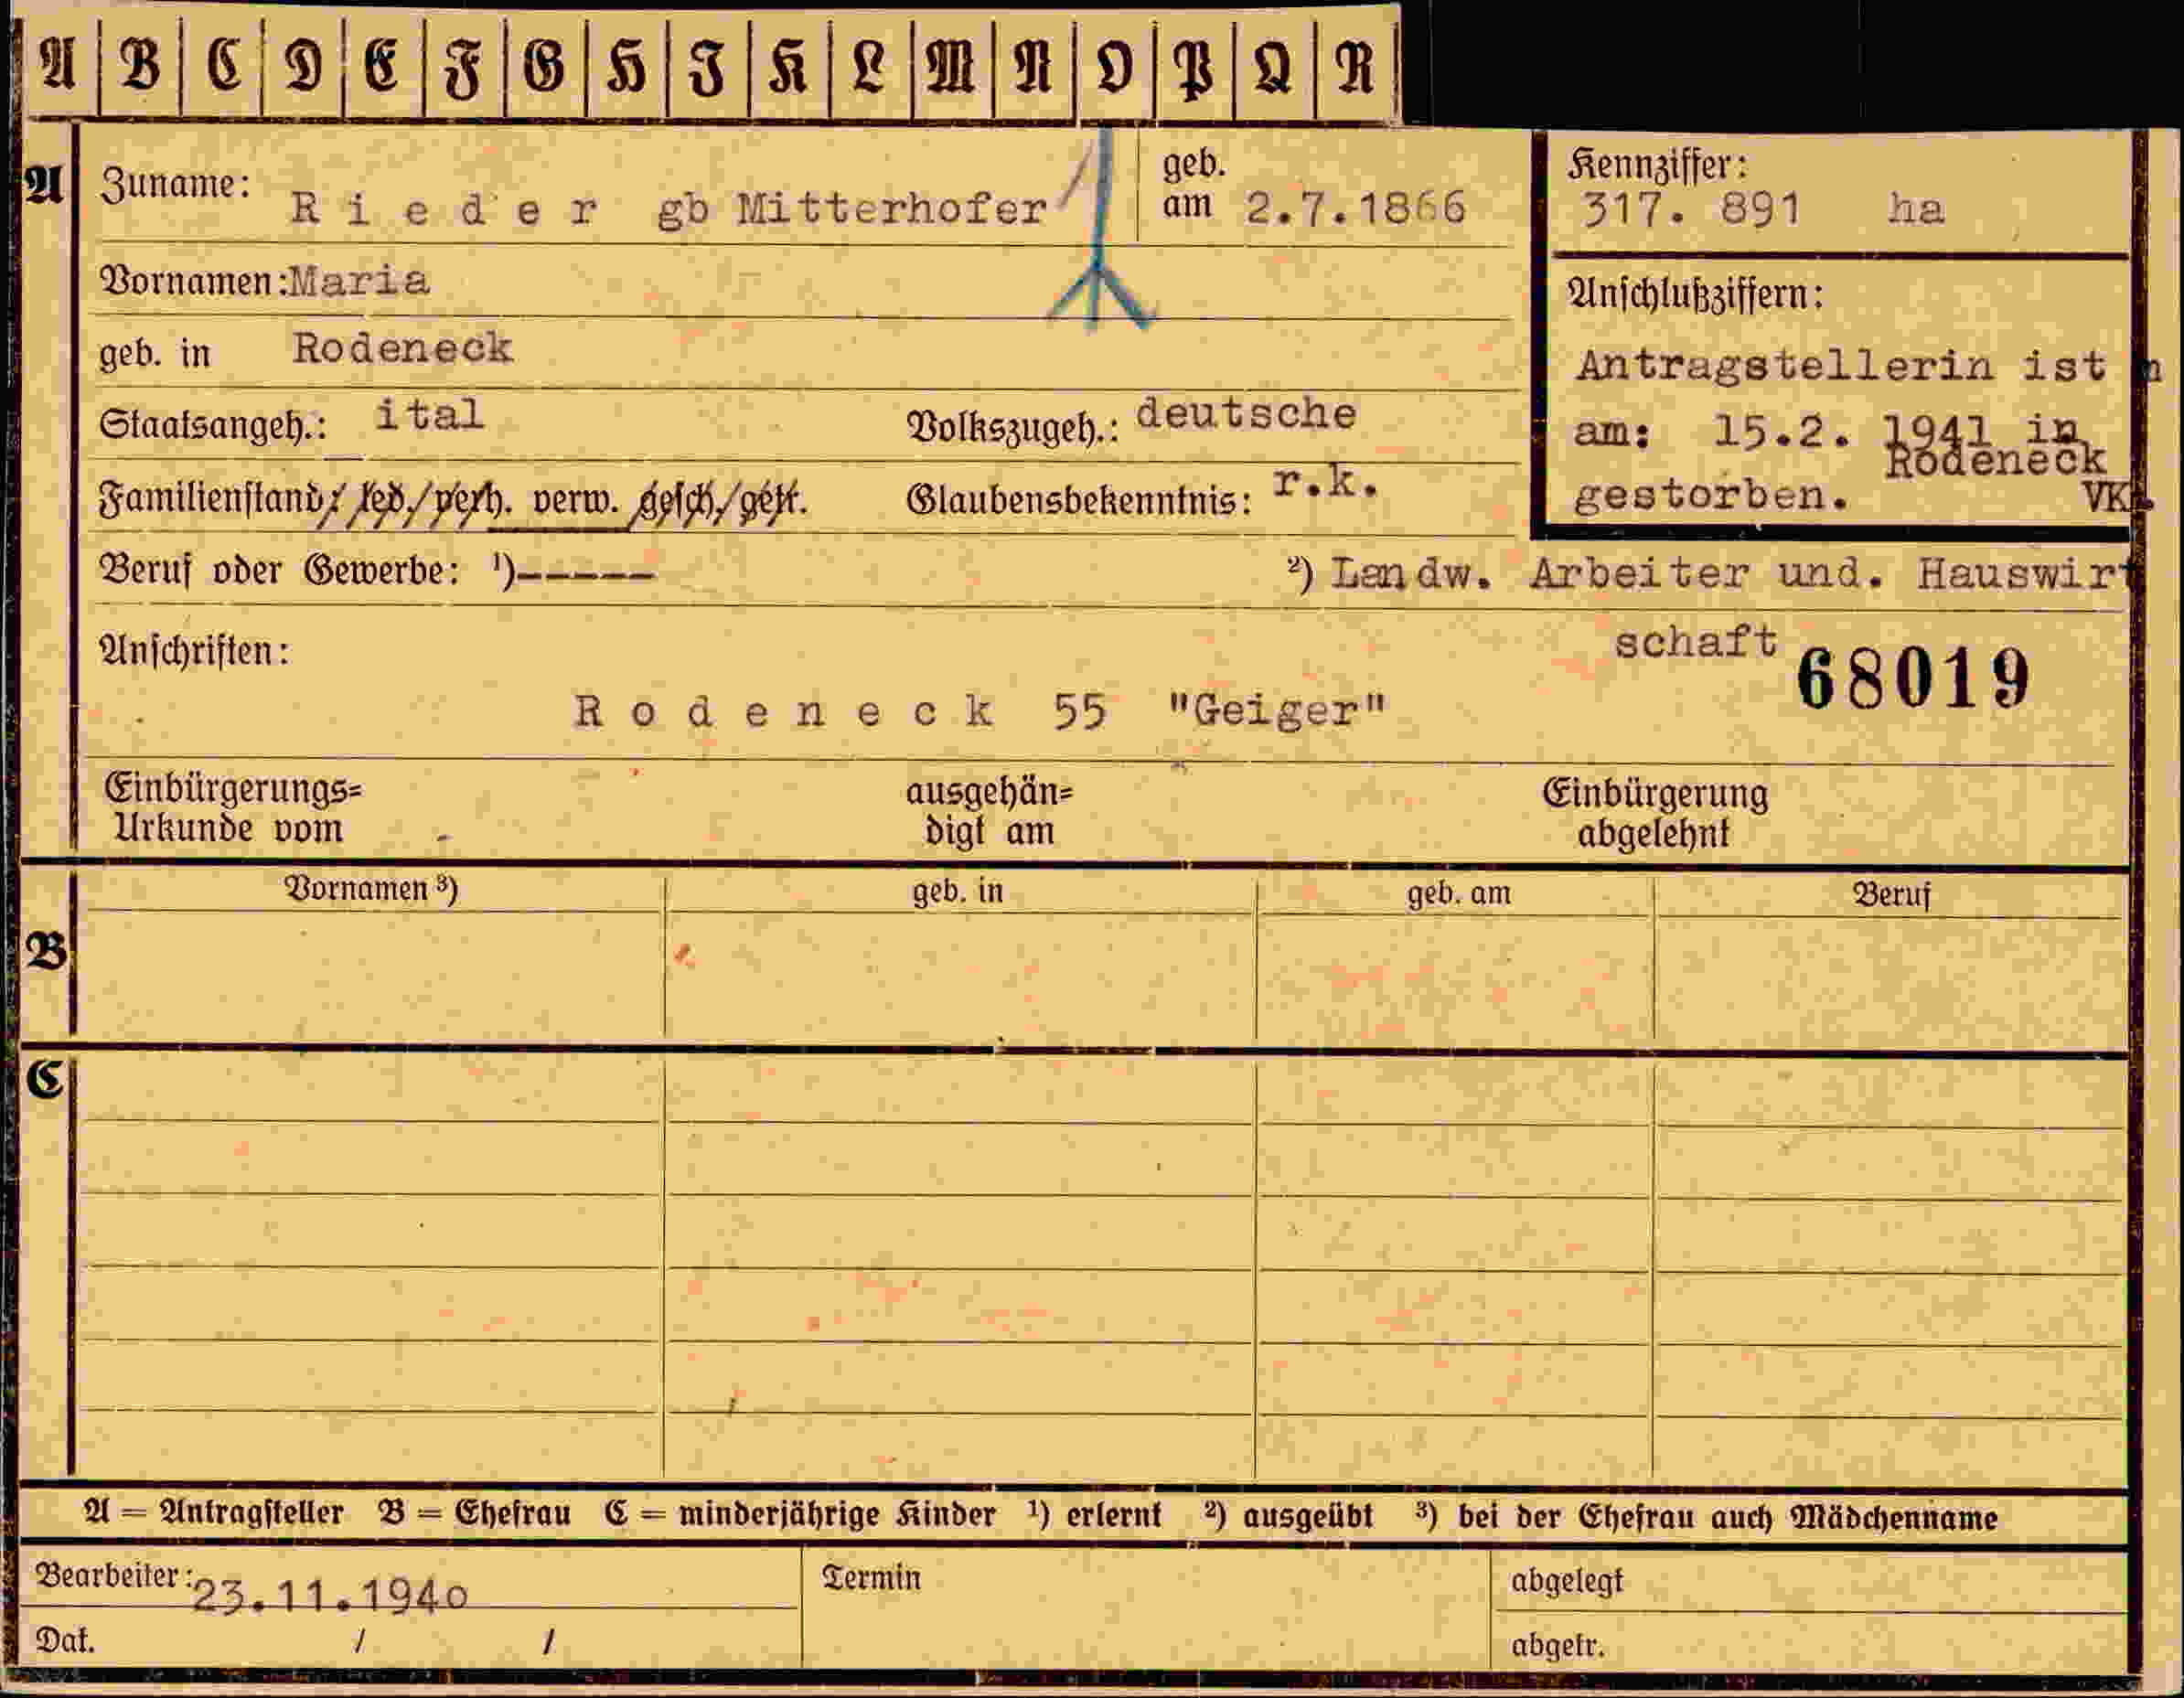 A B C D E F G H I K L M N O P Q R
A Zuname: Rieder gb Mitterhofer geb. am 2.7.1866
Kennziffer: 317. 891 ha
Vornamen: Maria
geb. in Rodeneck
Anschlußziffern:
Antragstellerin ist
am: 15.2. 1941 in Rodeneck
gestorben. VK
Staatsangeh.: ital Volkszugeh.: deutsche
Familienstand: led./verh. verw. gesch./getr. Glaubensbekenntnis: r.k.
Beruf oder Gewerbe: ¹)----- ²) Landw. Arbeiter und. Hauswirt
schaft
Anschriften: 68019
Rodeneck 55 "Geiger"
Einbürgerungs=
Urkunde vom
ausgehän=
digt am
Einbürgerung
abgelehnt
Vornamen ³) geb. in geb. am Beruf
B
C
A = Antragsteller B = Ehefrau C = minderjährige Kinder ¹) erlernt ²) ausgeübt ³) bei der Ehefrau auch Mädchenname
Bearbeiter: 23.11.1940 Termin abgelegt
Dat. / / abgetr.